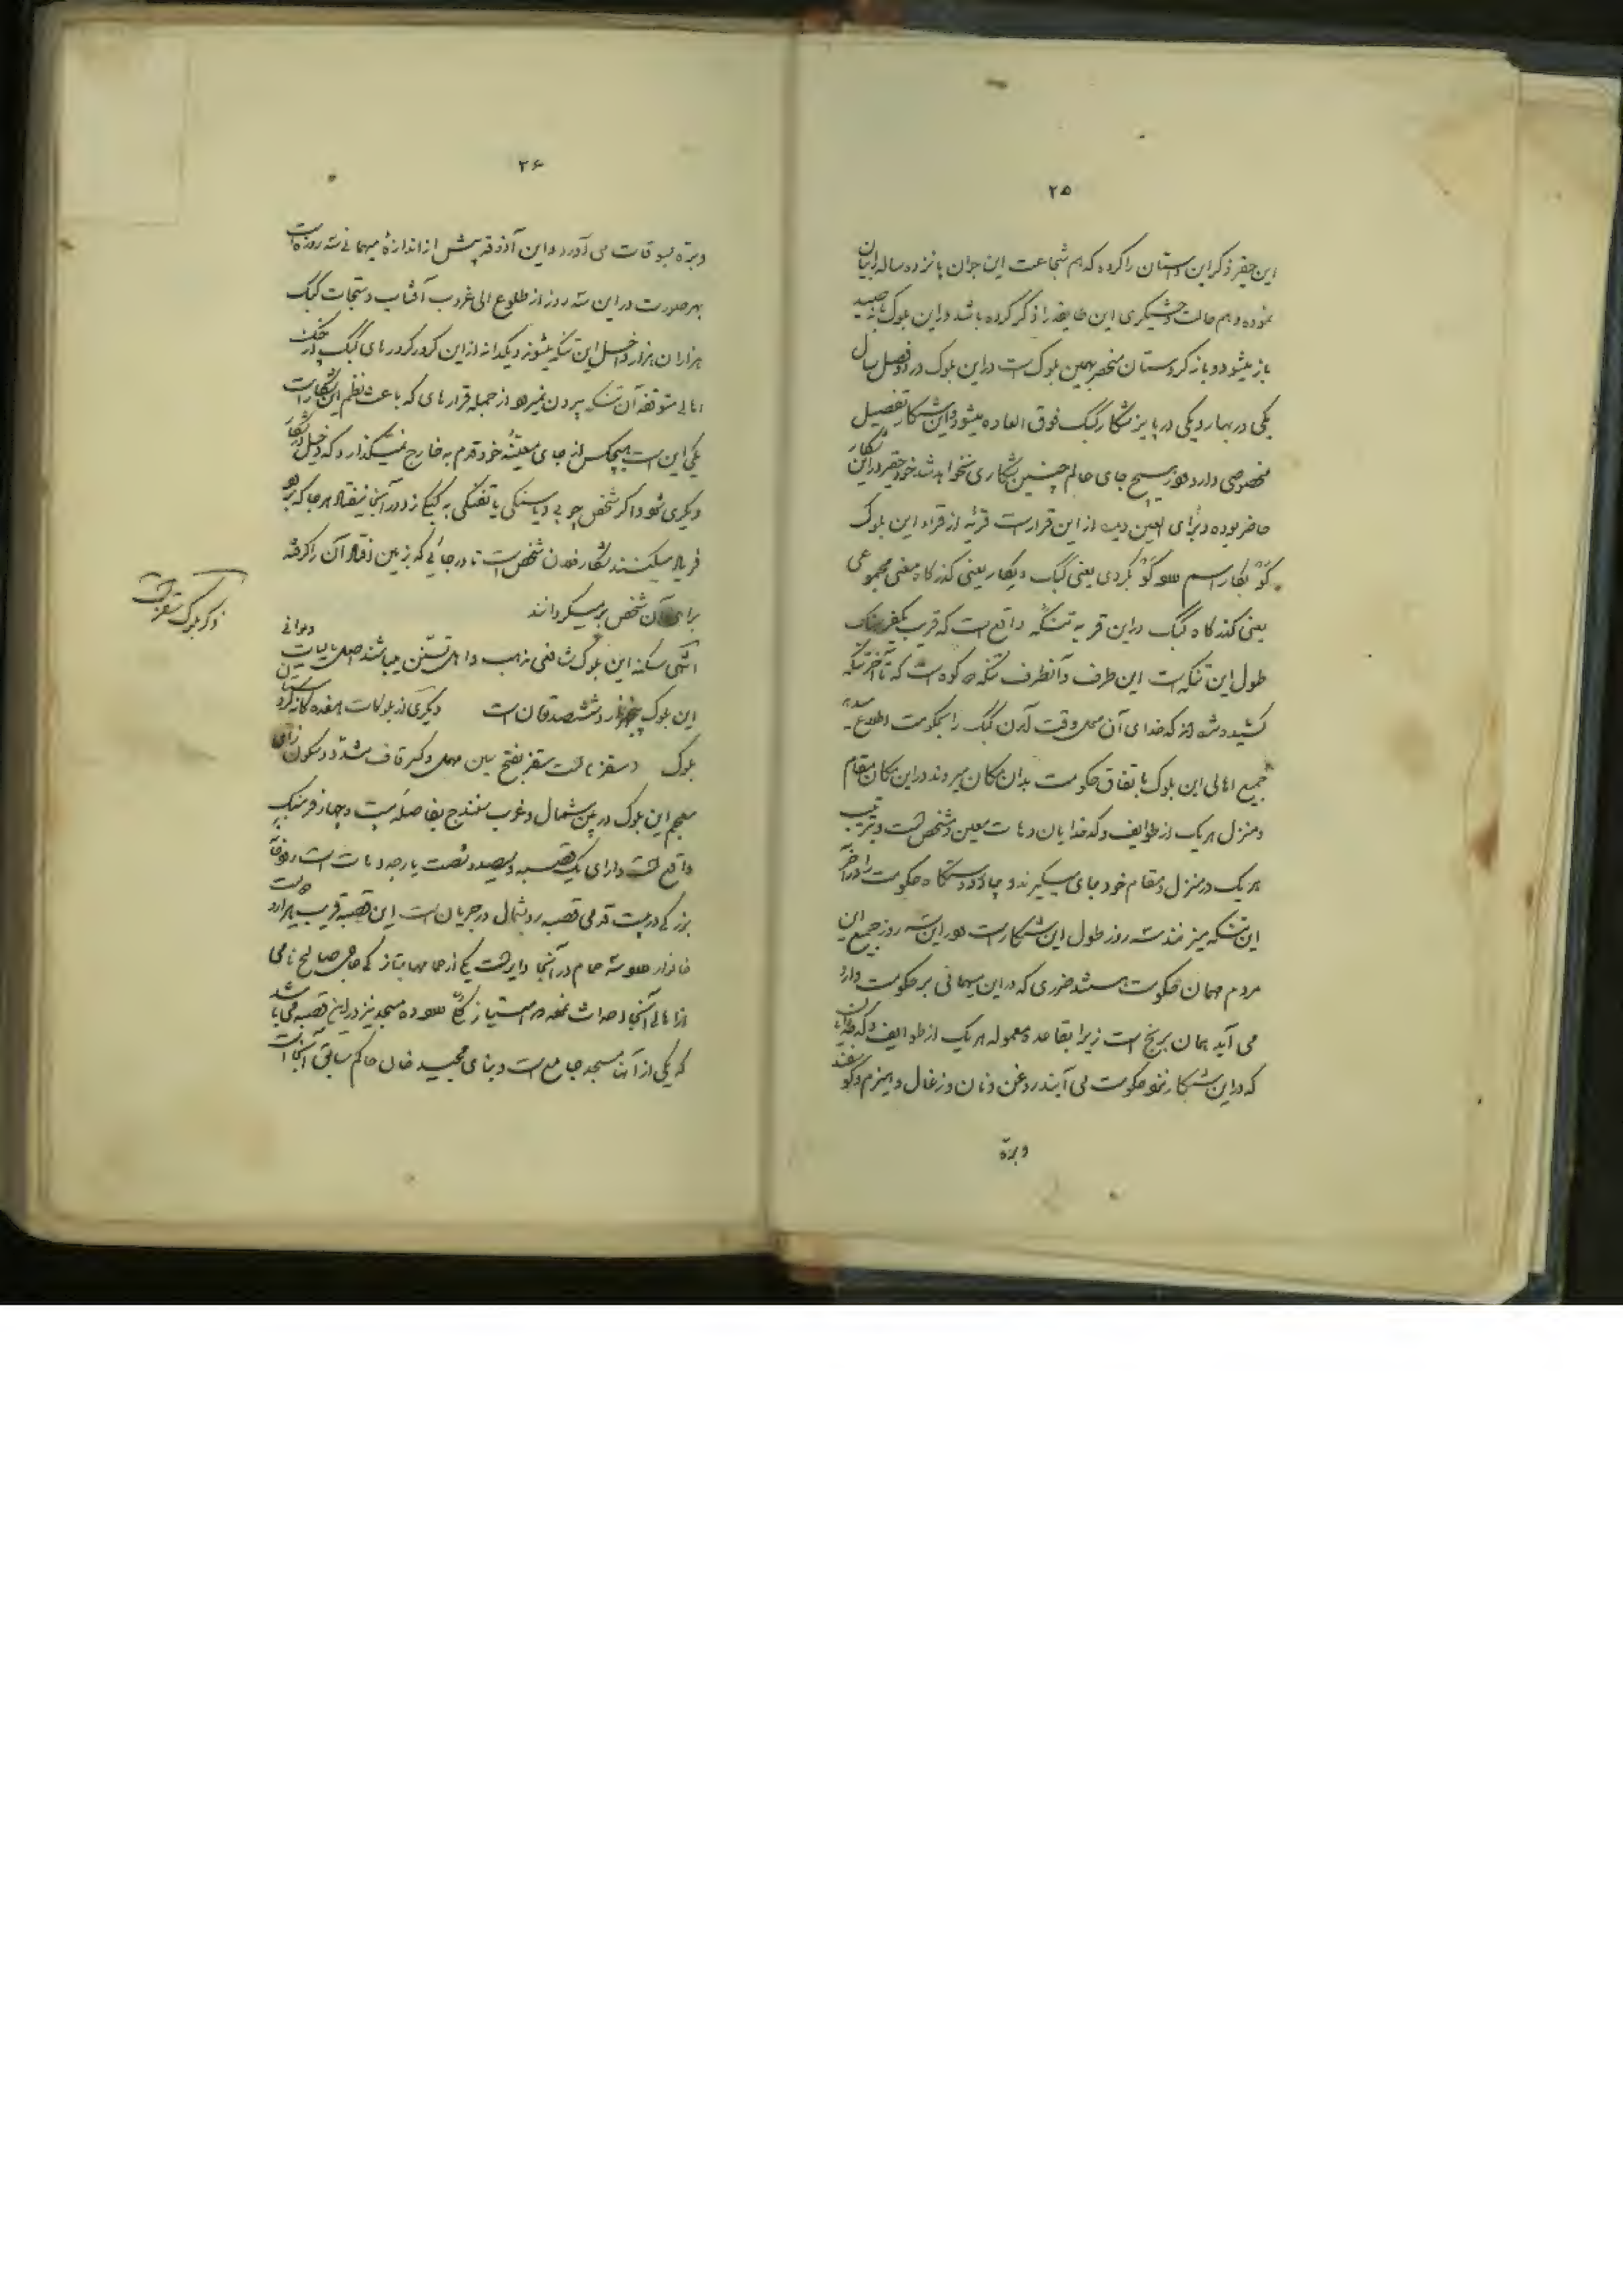 ۲۵
این حقیر ذکر این داستان را کرده که هم شجاعت این جوان پانزده ساله را بیان
نموده و هم حالت وحشیگری این طایفه را ذکر کرده باشد در این بلوک باز صید
باز میشود و باز کردستان منحصر بهمین بلوک است در این بلوک در دو فصل سال
یکی در بهار و یکی در پاییز شکار کبک فوق العاده میشود و این شکار تفصیل
مخصوصی دارد در هیچ جای عالم چنین شکاری نخواهد شد خود حقیر در این شکار
حاضر بوده و برای العین دیده از این قرار است قریهٔ از قراء این بلوک
کَوْ بکار اسم کَوْ بکردی یعنی کبک و بکار یعنی گذرگاه معنی مجموعی
یعنی گذرگاه کبک در این قریه تنگهٔ واقع است که قریب یکفرسنگ
طول این تنگه است این طرف و آنطرف تنگه کوه است که تا آخر تنگه
کشیده شده کدخدای آن محل وقت آمدن کبک را بحکومت اطلاع میدهد
جمیع اهالی این بلوک باتفاق حکومت بدان مکان میروند در این مکان مقام
و منزل هر یک از طوایف و کدخدایان دهات معین و مشخص است و بترتیب
هر یک در منزل و مقام خود جای میگیرند و چادر و دستگاه حکومت را در آخر
این تنگه میزنند سه روز طول این شکار است در این سه روز جمیع این
مردم مهمان حکومت هستند ضرری که در این میهمانی بر حکومت وارد
می آید همان برنج است زیرا بقاعده معموله هر یک از طوایف و کدخدایان
که در این شکار نزد حکومت می آیند روغن و نان و زغال و هیزم و گوسفند
و بره
۲۶
و بره بسوقات می آورد و این آذوقه بیش از اندازهٔ میهمانی سه روزه است
بهر صورت در این سه روز از طلوع الی غروب آفتاب دستجات کبک
هزاران هزار داخل این تنگه میشوند و یکدانه از این کرور کرورهای کبک از چنگ
اهالی متوقفه آن تنگه بیرون نمیرود از جمله قرارهای که باعث نظم این شکار است
یکی این است هیچکس از جای معینهٔ خود قدم به خارج نمیگذارد که دخیل در شکار
دیگری شود اگر شخص چوبی و یا سنگی یا تفنگی به کبکی زد و در آنجا نیفتاد هر جا که برود
فریاد میکنند شکار فلان شخص است تا در جائی که بزمین افتاد آن را گرفته
برای آن شخص برمیگردانند
انتهی سکنه این بلوک شافعی مذهب و اهل تسنن میباشند اصل مالیات دیوانی
این بلوک پنجهزار و ششصد تومان است دیگری از بلوکات هفده گانه کردستان
بلوک سقز است سقز بفتح سین مهمله و کسر قاف مشدد و سکون زای
معجم این بلوک در بین شمال و غرب سنندج بفاصله بیست و چهار فرسنگ
واقع است دارای یک قصبه و یکصد و شصت پارچه دهات است رودخانه
بزرگی در بیست قدمی قصبه رو بشمال در جریان است این قصبه قریب بهزار و دویست
خانوار و سه حمام در آنجا دایر است یکی از حمامها بتازگی حاجی صالح نامی
از اهالی آنجا احداث نموده در مسجد نیز در این قصبه می باشد
که یکی از آنها مسجد جامع است و بنای مجید خان حاکم سابق آنجا است
ذکر بلوک سقز است